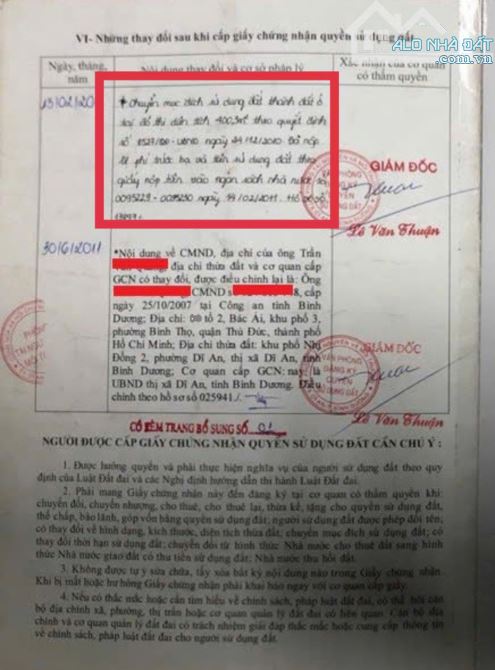 ALO NHÀ ĐẤT
VI- Những thay đổi sau khi cấp giấy chứng nhận quyền sử dụng đất
Ngày, tháng, năm
Nội dung thay đổi và cơ sở pháp lý
Xác nhận của cơ quan có thẩm quyền
* Chuyển mục đích sử dụng đất thành đất ở
tại đô thị diện tích 400,3m² theo quyết định
ngày 12/2010 Đã nộp
lệ phí trước bạ và tiền sử dụng đất theo
giấy nộp tiền vào ngân sách nhà nước số
ngày 14/02/2011. Hồ sơ số
GIÁM ĐỐC
Lê Văn Thuận
30/6/2011
*Nội dung về CMND, địa chỉ của ông Trần
địa chỉ thửa đất và cơ quan cấp
GCN có thay đổi, được điều chỉnh lại là: Ông
CMND số
ngày 25/10/2007 tại Công an tỉnh Bình
Dương; Địa chỉ: tổ 2, Bác Ái, khu phố 3,
phường Bình Thọ, quận Thủ Đức, thành phố
Hồ Chí Minh; Địa chỉ thửa đất: khu phố Nhị
Đồng 2, phường Dĩ An, thị xã Dĩ An, tỉnh
Bình Dương; Cơ quan cấp GCN: nay là
UBND thị xã Dĩ An, tỉnh Bình Dương. Điều
chỉnh theo hồ sơ số 025941./.
GIÁM ĐỐC
VĂN PHÒNG
ĐĂNG KÝ
QUYỀN
SỬ DỤNG ĐẤT
Lê Văn Thuận
CÓ KÈM TRANG BỔ SUNG SỐ 01
NGƯỜI ĐƯỢC CẤP GIẤY CHỨNG NHẬN QUYỀN SỬ DỤNG ĐẤT CẦN CHÚ Ý :
1. Được hưởng quyền và phải thực hiện nghĩa vụ của người sử dụng đất theo quy
định của Luật Đất đai và các Nghị định hướng dẫn thi hành Luật Đất đai.
2. Phải mang Giấy chứng nhận này đến đăng ký tại cơ quan có thẩm quyền khi:
chuyển đổi, chuyển nhượng, cho thuê, cho thuê lại, thừa kế, tặng cho quyền sử dụng đất,
thế chấp, bảo lãnh, góp vốn bằng quyền sử dụng đất; người sử dụng đất được phép đổi tên;
có thay đổi về hình dạng, kích thước, diện tích thửa đất; chuyển mục đích sử dụng đất; có
thay đổi thời hạn sử dụng đất; chuyển đổi từ hình thức Nhà nước cho thuê đất sang hình
thức Nhà nước giao đất có thu tiền sử dụng đất; Nhà nước thu hồi đất.
3. Không được tự ý sửa chữa, tẩy xóa bất kỳ nội dung nào trong Giấy chứng nhận.
Khi bị mất hoặc hư hỏng Giấy chứng nhận phải khai báo ngay với cơ quan cấp giấy.
4. Nếu có thắc mắc hoặc cần tìm hiểu về chính sách, pháp luật đất đai, có thể hỏi cán
bộ địa chính xã, phường, thị trấn hoặc cơ quan quản lý đất đai có liên quan. Cán bộ địa
chính và cơ quan quản lý đất đai có trách nhiệm giải đáp thắc mắc hoặc cung cấp thông tin
về chính sách, pháp luật đất đai cho người sử dụng đất.